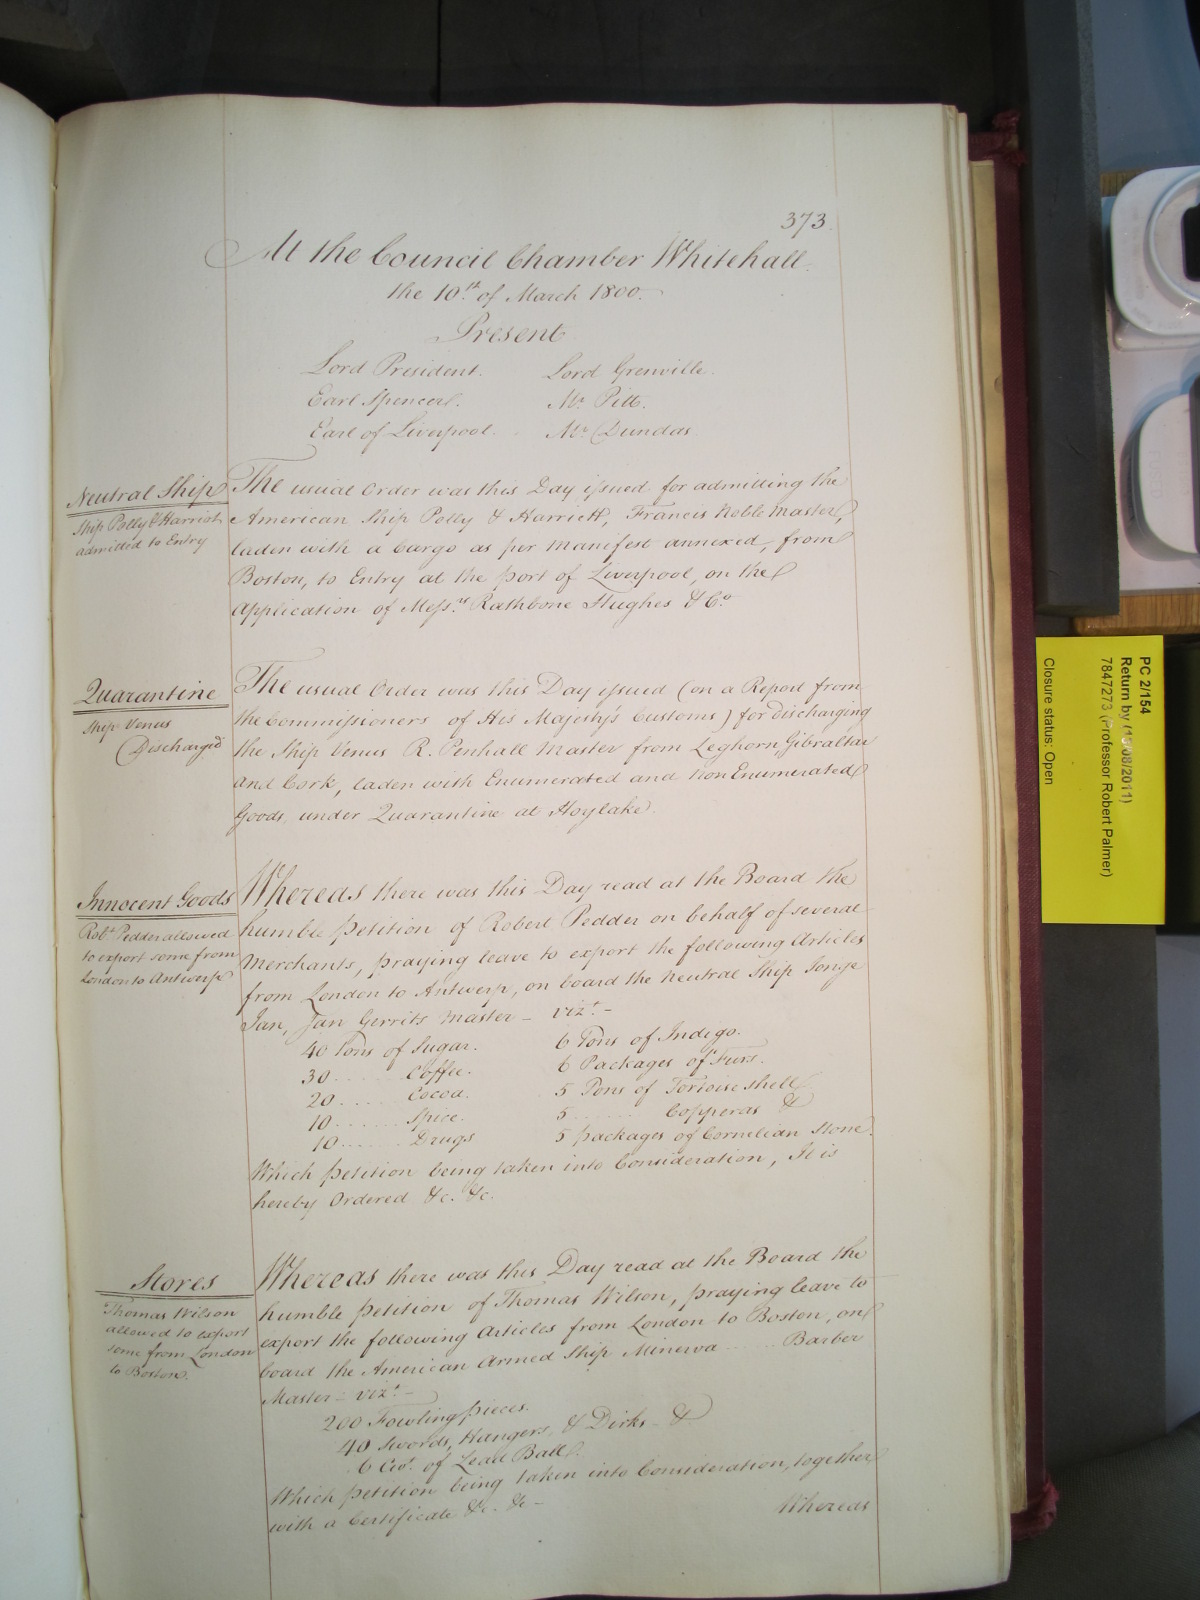 373.
At the Council Chamber Whitehall.
the 10th of March 1800.
Present
Lord President. Lord Grenville.
Earl Spencer. Mr. Pitt.
Earl of Liverpool. Mr. Dundas
Neutral Ship
Ship Polly & Harriot
admitted to Entry
The usual Order was this Day issued for admitting the
American Ship Polly & Harriett, Francis Noble Master,
laden with a Cargo as per Manifest annexed, from
Boston, to Entry at the port of Liverpool, on the
Application of Messrs. Rathbone Hughes & Co.
Quarantine
Ship Venus
Discharged
The usual Order was this Day issued (on a Report from
the Commissioners of His Majesty's Customs) for discharging
the Ship Venus R. Penhall Master from Leghorn, Gibraltar
and Cork, laden with Enumerated and Non Enumerated
Goods, under Quarantine at Hoylake.
Innocent Goods
Robt. Pedder allowed
to export some from
London to Antwerp
Whereas there was this Day read at the Board the
humble petition of Robert Pedder on behalf of several
Merchants, praying leave to export the following Articles
from London to Antwerp, on board the Neutral Ship Jonge
Jan, Jan Gerrits Master - vizt. -
40 Tons of Sugar. 6 Tons of Indigo.
30 ..... Coffee. 6 Packages of Furs.
20 ..... Cocoa. 5 Tons of Tortoiseshell
10 ..... Spice. 5 ..... Copperas &
10 ..... Drugs 5 packages of Cornelian Stone.
Which petition being taken into Consideration, It is
hereby Ordered &c. &c.
Stores
Thomas Wilson
allowed to export
some from London
to Boston.
Whereas there was this Day read at the Board the
humble petition of Thomas Wilson, praying leave to
export the following Articles from London to Boston, on
board the American Armed Ship Minerva ..... Barber
Master - vizt. -
200 Fowling pieces.
40 Swords, Hangers, & Dirks - &
6 Cwt. of Lead Ball.
Which petition being taken into Consideration, together
with a Certificate &c. &c -
Whereas
PC 2/154
Return by (15/08/2011)
7847273 (Professor Robert Palmer)
Closure status: Open